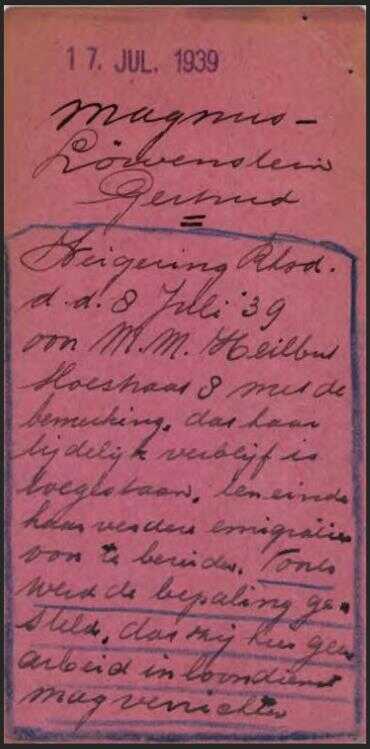 17. JUL. 1939
Magnus-
Löwenstein
Gertrud
=
Weigering Rhod.
d.d. 8 Juli '39
von M.M. Heilbut
8 met de
bemerking, dat haar
tijdelijk verblijf is
toegestaan, ten einde
haar verdere emigratie
voor te bereiden. Tevens
werd de bepaling ge-
steld, dat zij hier geen
arbeid in loondienst
mag verrichten